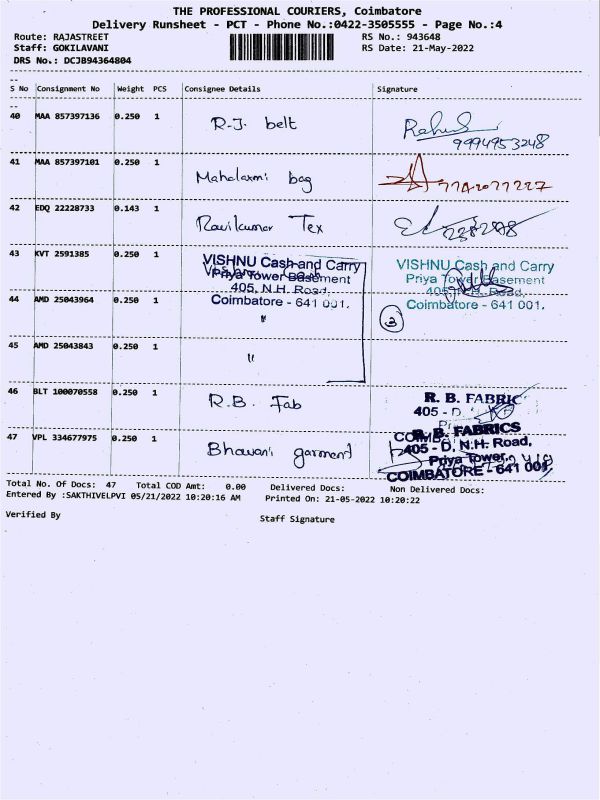 THE PROFESSIONAL COURIERS, Coimbatore
Delivery Runsheet - PCT - Phone No.:0422-3505555 - Page No.:4
Route: RAJASTREET RS No.: 943648
Staff: GOKILAVANI RS Date: 21-May-2022
DRS No.: DCJB94364804
S No Consignment No Weight PCS Consignee Details Signature
40 MAA 857397136 0.250 1 R.J. belt
9994953248
41 MAA 857397101 0.250 1 Mahalaxmi bag
42 EDQ 22228733 0.143 1 Ravikumar Tex
43 KVT 2591385 0.250 1 VISHNU Cash and Carry VISHNU Cash and Carry
Priya Tower Basement Priya Tower Basement
405, N.H. Road, 405, N.H. Road,
44 AMD 25043964 0.250 1 Coimbatore - 641 001. Coimbatore - 641 001.
" 3
45 AMD 25043843 0.250 1 "
46 BLT 100070558 0.250 1 R.B. Fab R. B. FABRIC
405 - D
47 VPL 334677975 0.250 1 Bhavani garment R. B. FABRICS
405 - D, N.H. Road,
Priya Tower,
COIMBATORE - 641 001.
Total No. Of Docs: 47 Total COD Amt: 0.00 Delivered Docs: Non Delivered Docs:
Entered By :SAKTHIVELPVI 05/21/2022 10:20:16 AM Printed On: 21-05-2022 10:20:22
Verified By Staff Signature